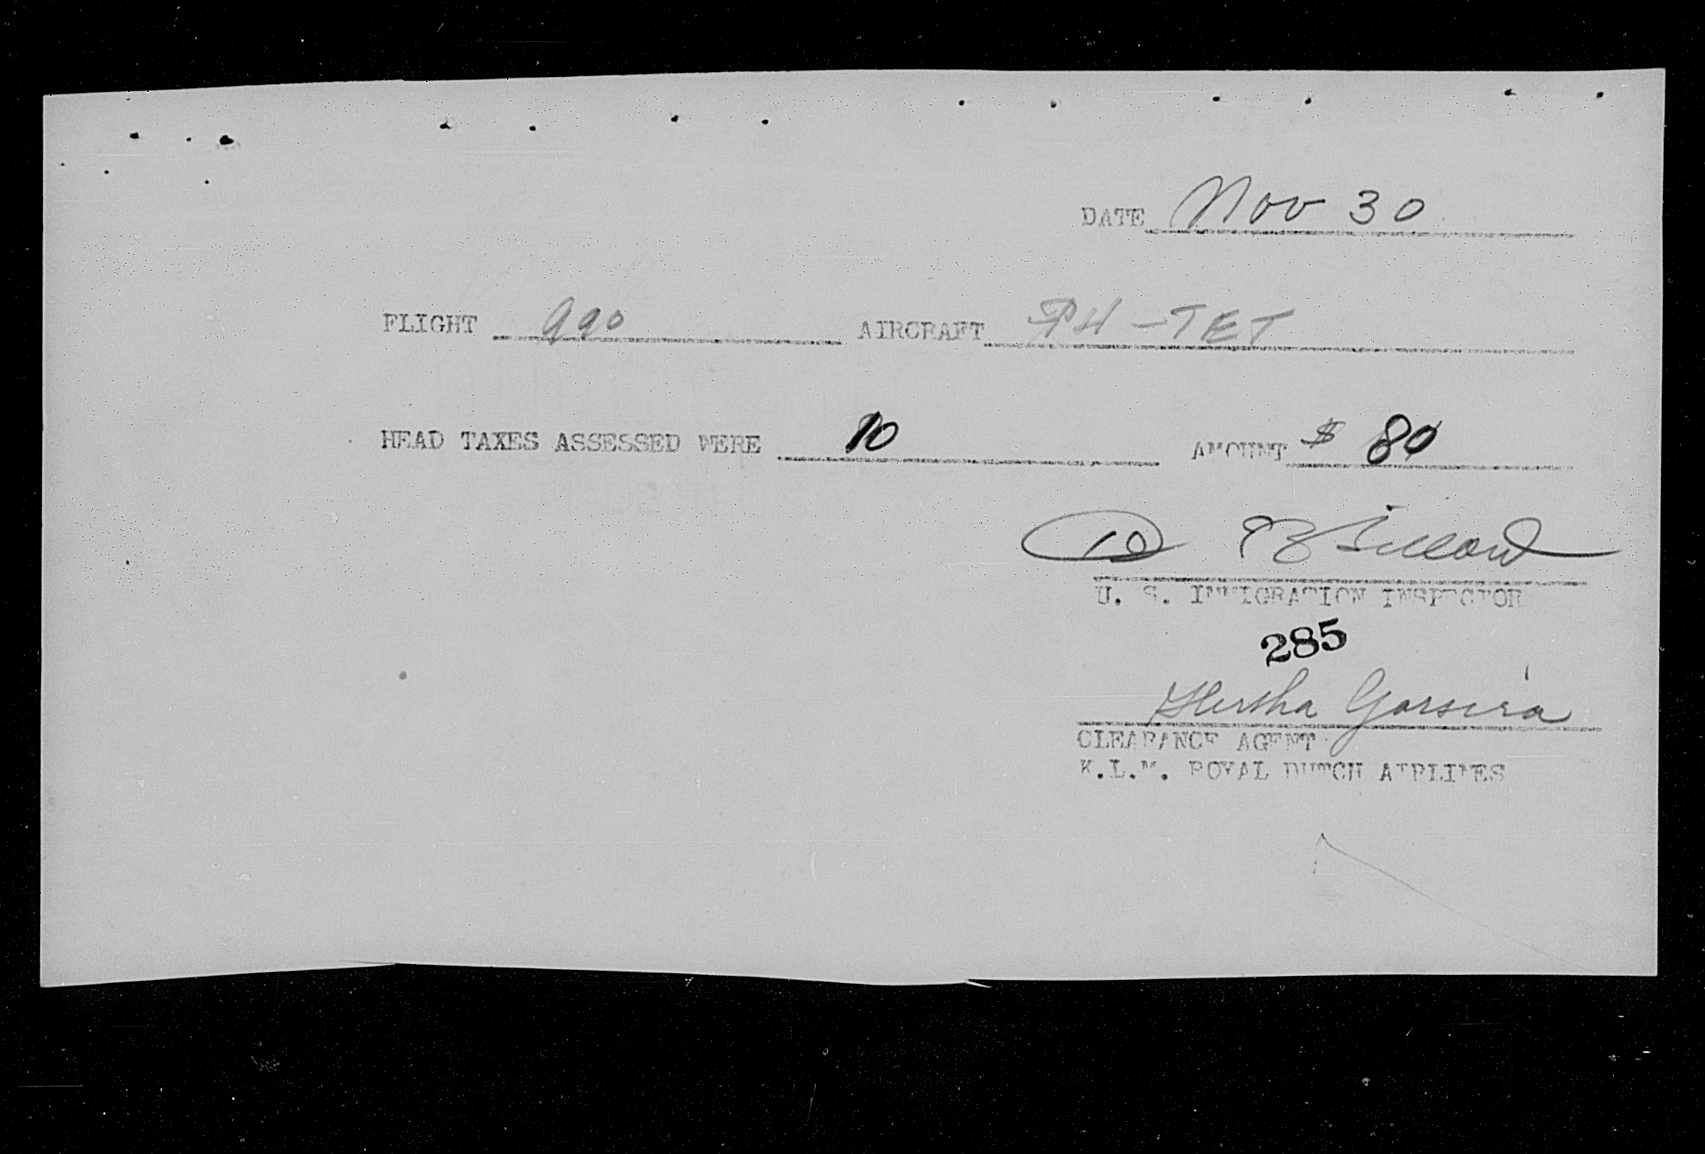 DATE Nov 30
FLIGHT 990 AIRCRAFT PH-TET
HEAD TAXES ASSESSED WERE 10 AMOUNT $ 80
10
U. S. IMMIGRATION INSPECTOR
285
Hertha Gorsira
CLEARANCE AGENT
K.L.M. ROYAL DUTCH AIRLINES